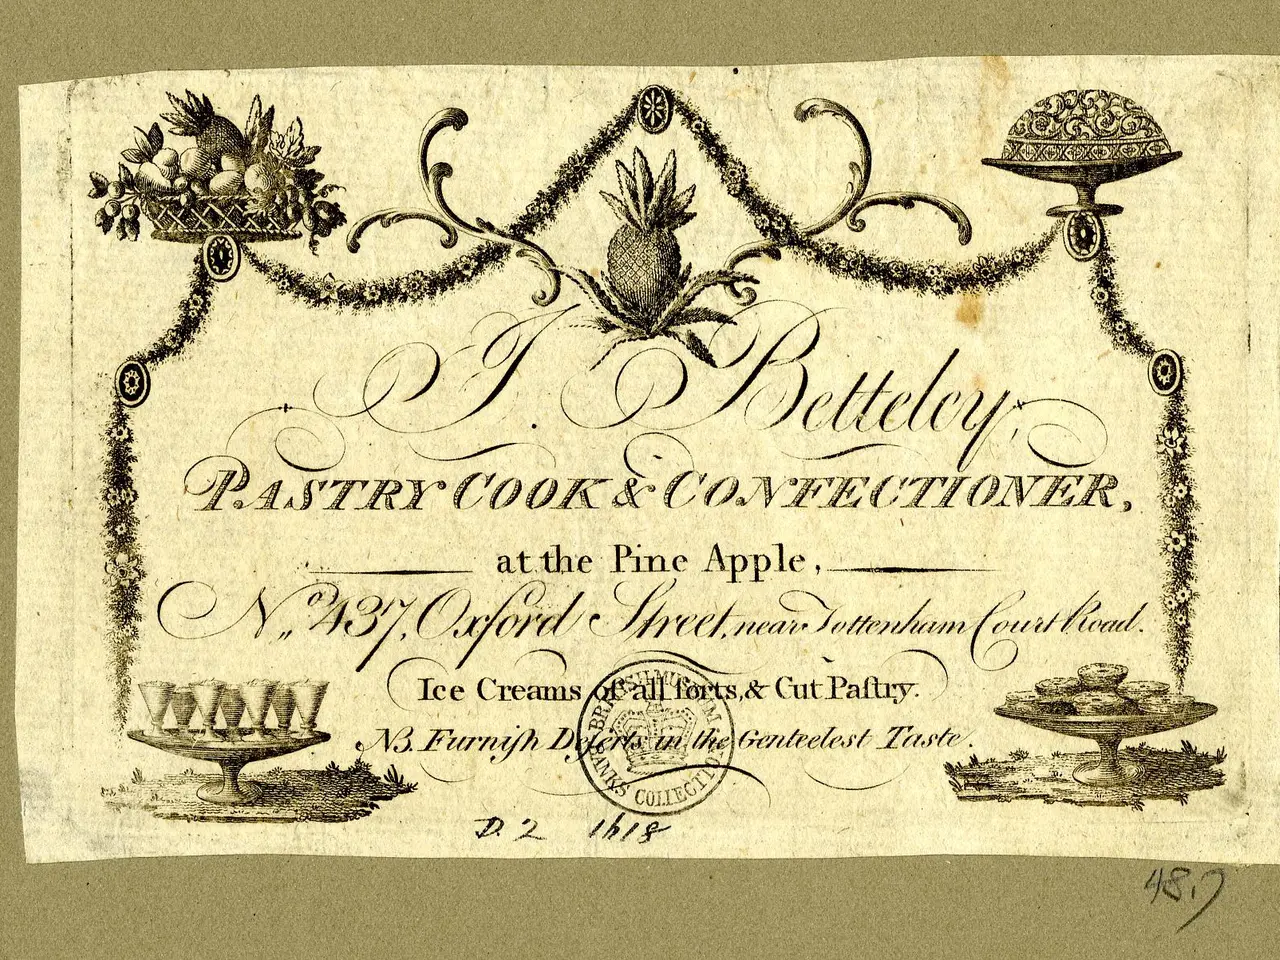 J. Betteley,
PASTRY COOK & CONFECTIONER,
at the Pine Apple,
No. 437, Oxford Street, near Tottenham Court Road.
Ice Creams of all ſorts, & Cut Paſtry.
NB. Furniſh Deſerts in the Genteelest Taste.
BRITISH MUSEUM
BANKS COLLECTION
D.2 1618
48.7